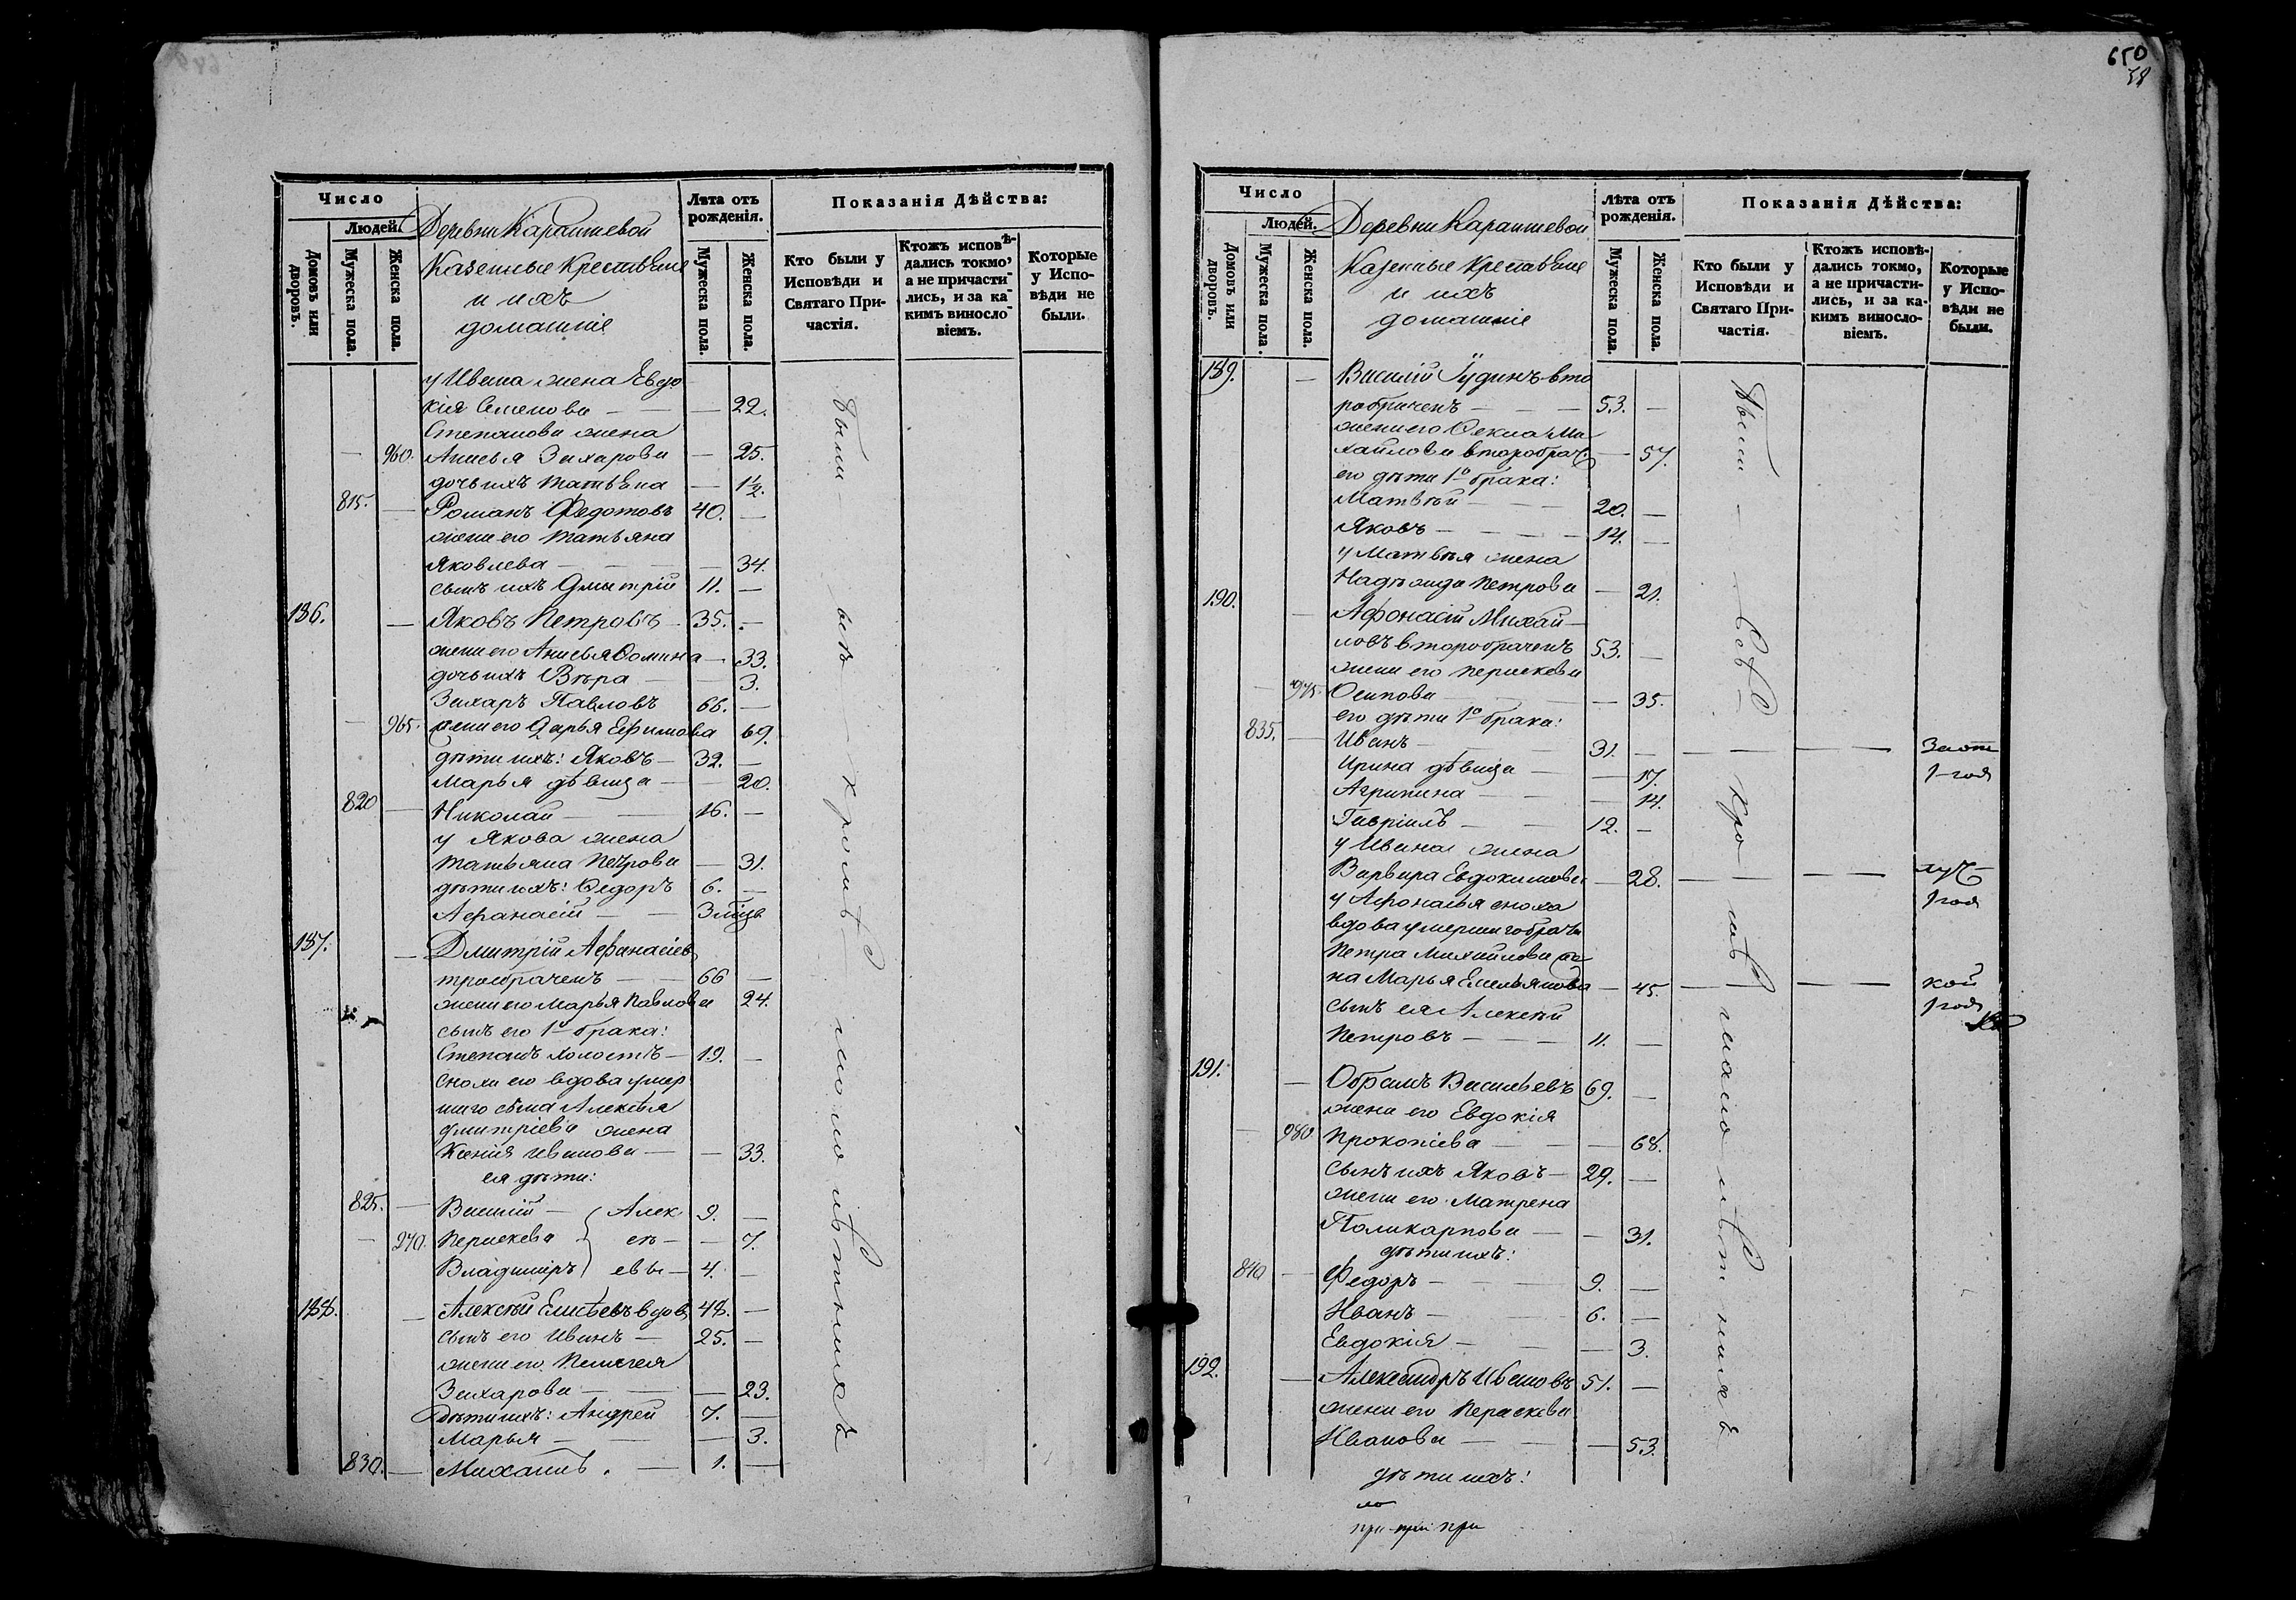 Число
Людей.
Домовъ или дворовъ.
Мужеска пола.
Женска пола.
Деревни Карашевой
Казенные крестьяне
и ихъ
домашніе
Лѣта отъ рожденія.
Мужеска пола.
Женска пола.
Показанія Дѣйства:
Кто были у Исповѣди и Святаго Причастія.
Ктожъ исповѣдались токмо, а не причастились, и за какимъ винословіемъ.
Которые у Исповѣди не были.
у Ивана жена Евдо
кія Семенова — — 22.
Степанова жена
— 960. Анисья Захарова — 25.
дочь ихъ Татьяна — 1½.
815. — Романъ Федотовъ 40. —
жена его Татьяна
Яковлева — — 34.
сынъ ихъ Дмитрій 11. —
186. — Яковъ Петровъ 35. —
жена его Анисья Фомина — 33.
дочь ихъ Вѣра — — 3.
Захаръ Павловъ 66. —
— 965. жена его Дарья Ефимова 69.
дѣти ихъ: Яковъ — 32. —
Марья дѣвица — 20.
820 — Николай — 16. —
у Якова жена
Татьяна Петрова — 31.
дѣти ихъ: Ѳедоръ 6. —
Афанасій — 3 мѣся
187. — Дмитрій Афанасіев
троебраченъ — 66 —
жена его Марья Павлова 24.
сынъ его 1го брака:
Степанъ холостъ — 19. —
сноха его вдова умер
шаго сына Алексѣя
Дмитріева жена
Ксенія Иванова — — 33.
ея дѣти:
825. — Василій — 9. —
— 970. Параскева — 7.
Владиміръ 4. —
Алек
сѣ
евы
188. — Алексѣй Елисѣевъ вдов 48. —
сынъ его Иванъ — 25. —
жена его Пелагея
Захарова — — 23.
дѣти ихъ: Андрей 7. —
Марья — — 3.
830. — Михаилъ. — 1. —
были — всѣ — кромѣ — малолѣтнихъ
650
58
Число
Людей.
Домовъ или дворовъ.
Мужеска пола.
Женска пола.
Деревни Карашевой
Казенные крестьяне
и ихъ
домашніе
Лѣта отъ рожденія.
Мужеска пола.
Женска пола.
Показанія Дѣйства:
Кто были у Исповѣди и Святаго Причастія.
Ктожъ исповѣдались токмо, а не причастились, и за какимъ винословіемъ.
Которые у Исповѣди не были.
189. — Василій Іудинъ вто
робраченъ — 53. —
жена его Ѳекла Ми
хайлова второбрач. — 57.
его дѣти 1го брака:
Матвѣй — 20. —
Яковъ — 14. —
у Матвѣя жена
Надѣжда Петрова — 21.
190. — Афонасій Михай
ловъ второбраченъ 53. —
жена его Параскева
— 975. Осипова — — 35.
его дѣти 1го брака:
835. — Иванъ — 31. — — — за от
Ирина дѣвица — — 17. 1 год
Агрипина — — 14.
Гавріилъ — 12. —
у Ивана жена
Варвара Евдокимова — 28. — — луч
у Афонасья сноха 1 год
вдова умершаго брата
Петра Михайлова же
на Марья Емельянова — 45. — — кой
сынъ ея Алексѣй 1 год
Петровъ — 11. —
191. — Обрамъ Васильевъ 69. —
жена его Евдокія
— 980 Прокопіева — — 68.
сынъ ихъ Яковъ — 29. —
жена его Матрена
Поликарпова — — 31.
дѣти ихъ:
840 — Федоръ — 9. —
Иванъ — 6. —
Евдокія — — 3.
192. — Александръ Ивановъ 51. —
жена его Параскева
Иванова — — 53.
дѣти ихъ:
были — всѣ — кромѣ малолѣтнихъ
ло
при при при